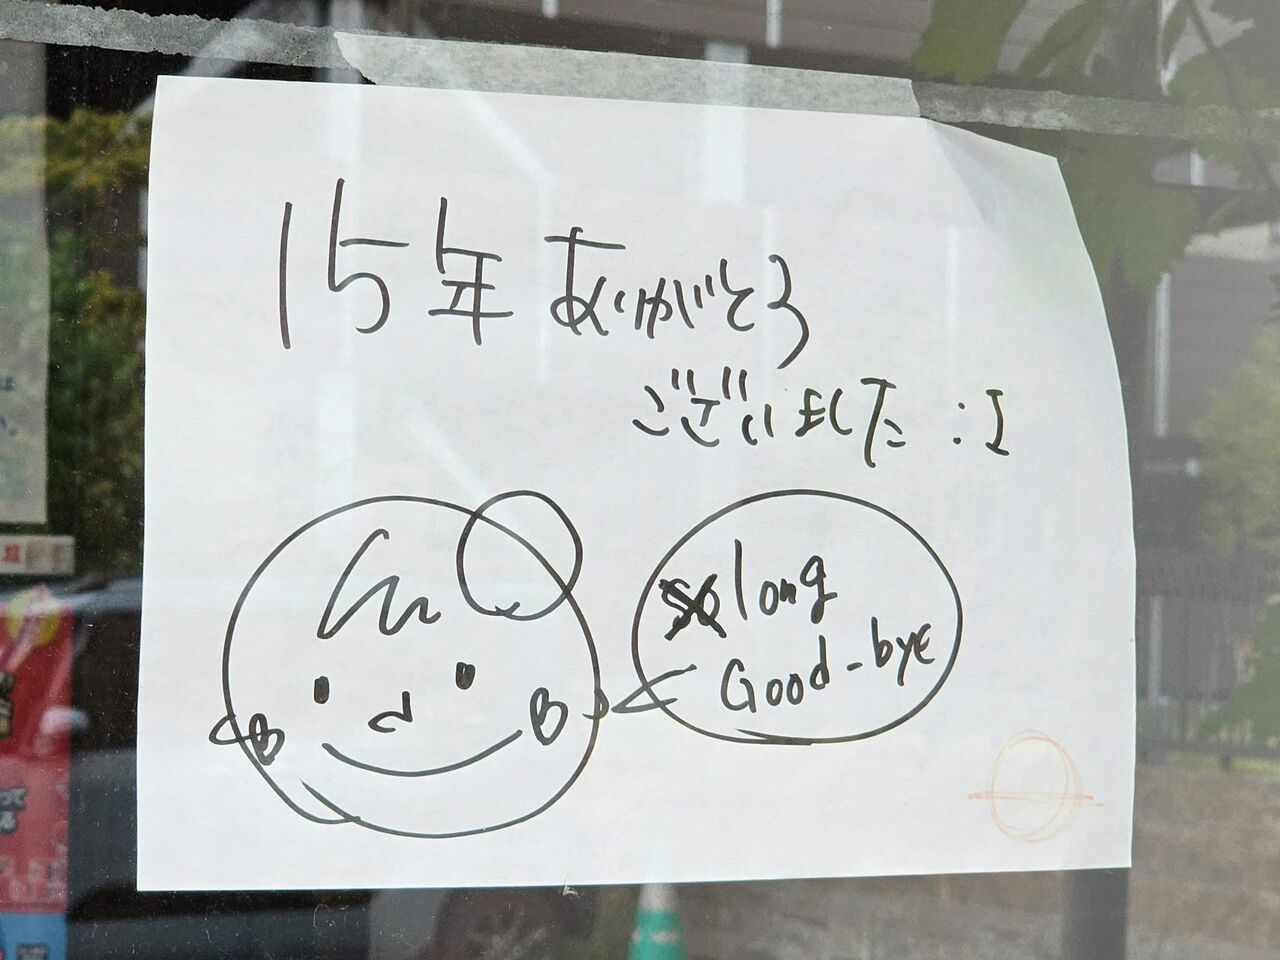 15年 ありがとう
ございました :I
So long
Good-bye